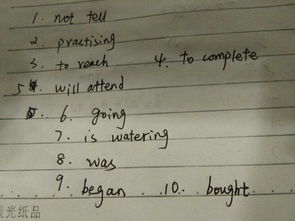 1. not tell
2. practising
3. to reach 4. to complete
5 will attend
6. going
7. is watering
8. was
9. began 10. bought
晨光纸品